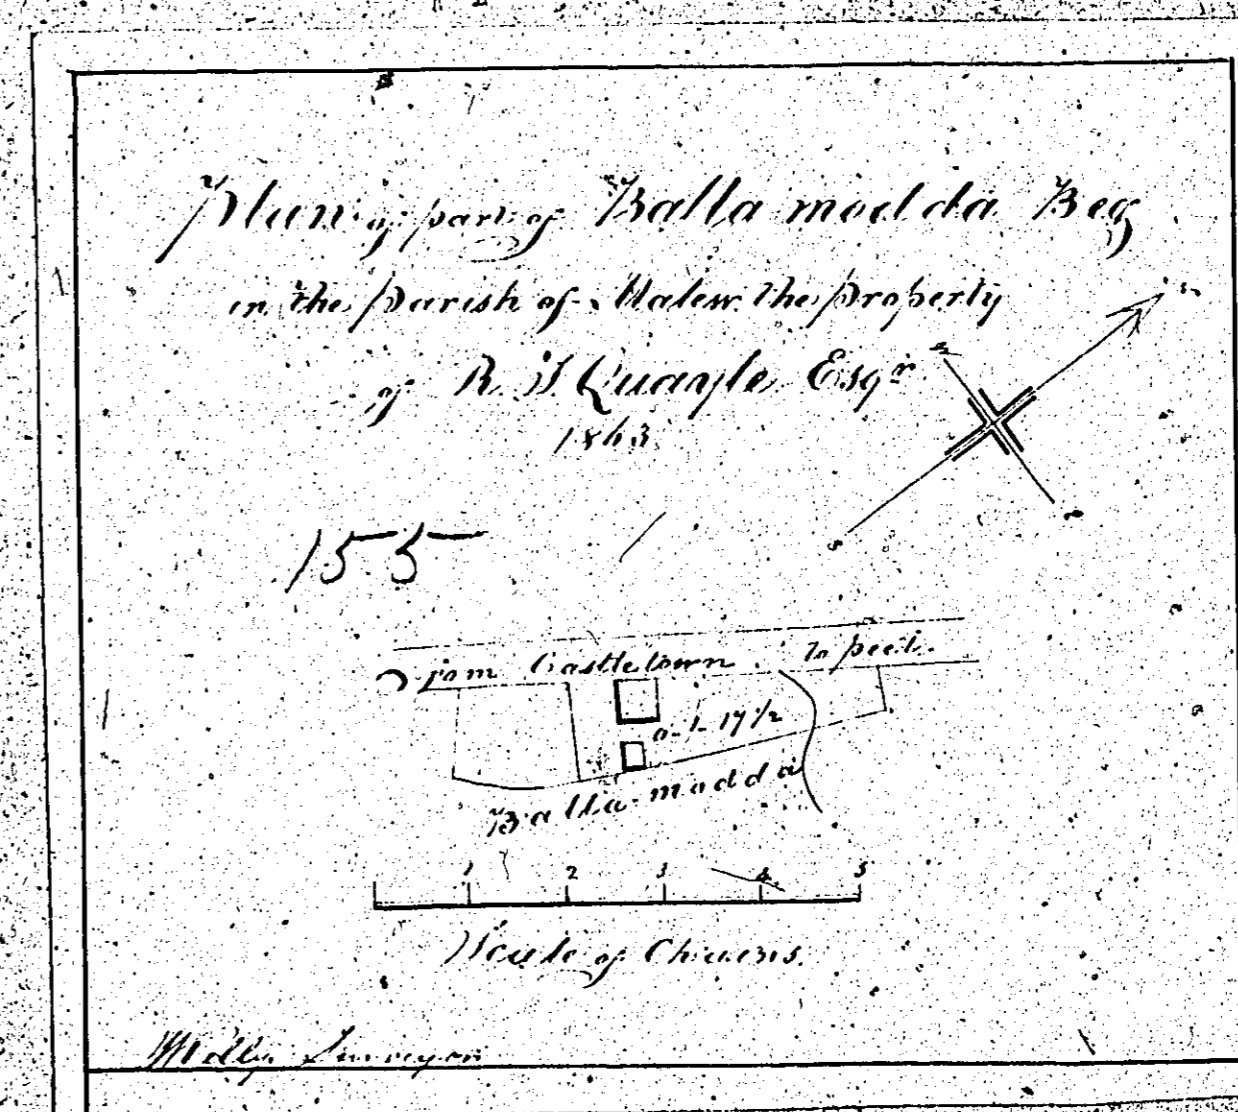 Plan of part of Balla modda Beg
in the Parish of Malew the Property
of R. Quayle Esqr
1863
155
from Castletown. To peel.
0-1-17 1/2
Balla modda
1 2 3 4 5
Scale of Chains.
Surveyor